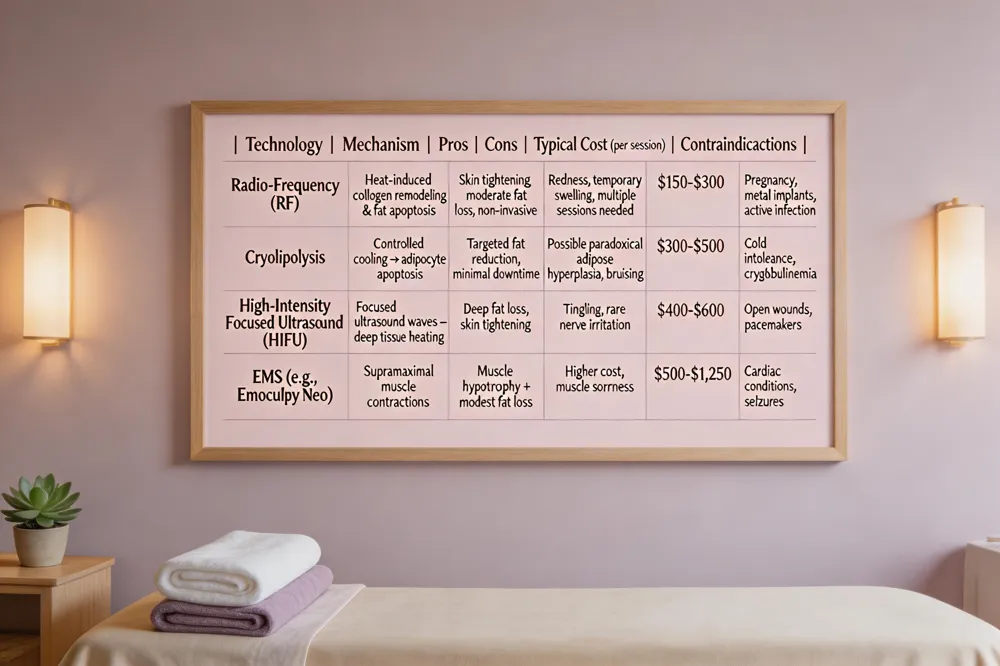 | Technology | Mechanism | Pros | Cons | Typical Cost (per session) | Contraindicactions |
Radio-Frequency
(RF)
Heat-induced
collagen remodeling
& fat apoptosis
Skin tightening
moderate fat
loss, non-invasive
Redness, temporary
swelling, multiple
sessions needed
$150-$300
Pregnancy,
metal implants,
active infection
Cryolipolysis
Controlled
cooling → adipocyte
apoptosis
Targeted fat
reduction,
minimal downtime
Possible paradoxical
adipose
hyperplasia, bruising
$300-$500
Cold
intoleance,
crygbbulinemia
High-Intensity
Focused Ultrasound
(HIFU)
Focused
ultrasound waves –
deep tissue heating
Deep fat loss,
skin tightening
Tingling, rare
nerve irritation
$400-$600
Open wounds,
pacemakers
EMS (e.g.,
Emoculpy Neo)
Supramaximal
muscle
contractions
Muscle
hypotrophy +
modest fat loss
Higher cost,
muscle sorrness
$500-$1,250
Cardiac
conditions,
selzures